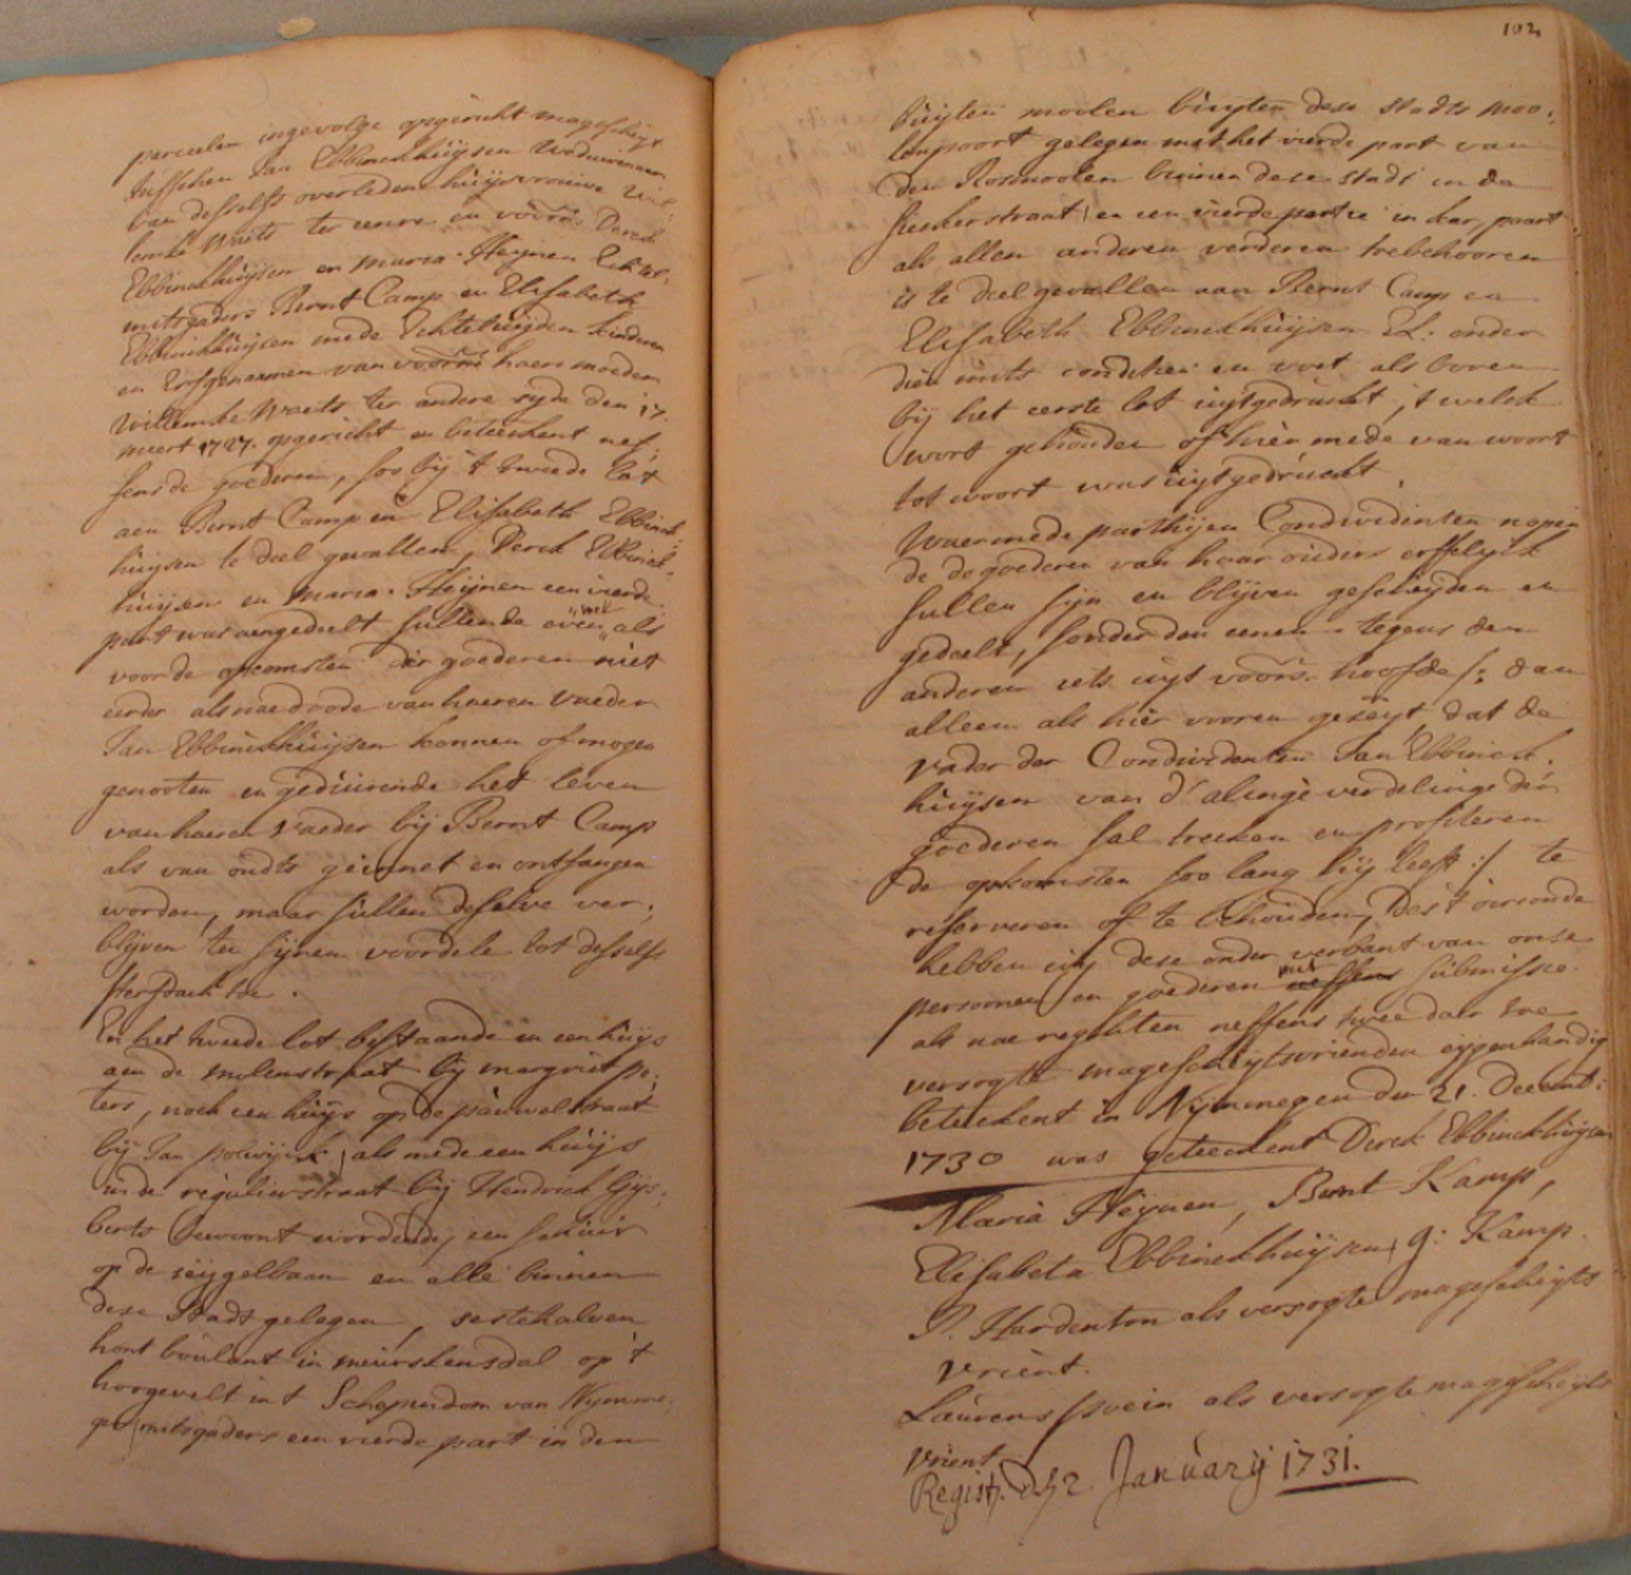 parceelen ingevolge opgericht magescheyt
tusschen Jan Ebbinckhuijsen Weduwenaer
van desselfs overleden huijsvrouwe Wil„
lemke Waets ter eenre en voorn. Derck
Ebbinckhuijsen en Maria Heijnen Echtel.
mitsgaders Bernt Camp en Elisabeth
Ebbinckhuijsen mede Echteluijden kinderen
en Erfgenaamen van voorn. haere moeder
Willemke Waets ter andere syde den 17.
meert 1727. opgericht en beteekent nef„
fens de goederen, soo bij 't tweede lot
aen Bernt Camp en Elisabeth Ebbinck„
huijsen te deel gevallen, Derck Ebbinck„
huijsen en Maria Heijnen een vierde
part was aengedeelt sullende even wel als
voor de opcomsten der goederen niet
eerder als nae doode van haeren vaeder
Jan Ebbinckhuijsen konnen of mogen
genooten en geduirende het leven
van haeren vaeder bij Bernt Camp
als van oudts geinnet en ontfangen
worden, maar sullen deselve ver„
blijven ten sijnen voordele tot desselfs
sterfdach toe.
En het tweede lot bestaande in een huijs
aen de molenstraat bij margriet pe„
ters, noch een huijs op de pauwelstraat
bij Jan polwijck, als mede een huijs
in de regulierstraat bij Hendrick Gijs„
berts bewoont wordende, een schuir
op de seijgelbaan en alle binnen
dese Stadt gelegen, sestehalven
hont bouland in meurskensdal op 't
hoogevelt in 't Schependom van Nymme„
gen, mitsgaders een vierde part in den
102
buijten moolen buijten dese stadts moo„
lenpoort gelegen met het vierde part van
den Rosmoolen binnen dese stadt in de
hieskerstraat, en een vierde partie in kar, paart
als allen anderen verderen toebehooren
is te deel gevallen aan Bernt Camp en
Elisabeth Ebbinckhuijsen El: onder
dien mits conditien en voet als boven
bij het eerste lot uijtgedruckt, 't welck
wort gehouden of hier mede van woort
tot woort was uijtgedruckt.
Waermede parthijen Condividenten nopen
de de goederen van haar ouders erffelijck
sullen sijn en blijven gescheijden en
gedeelt, sonder den eenen tegens den
anderen iets uijt voors. hoofde /: dan
alleen als hier vooren geseyt, dat de
vader der Condividenten Jan Ebbinck„
huijsen van d'alinge verdelinge der
goederen sal trecken en profiteren
de opkomsten soo lang hij leeft :/ te
reserveren of te behouden, Des 't oirconde
hebben wij dese onder verbant van onse
personen en goederen met submissie
als nae reghten neffens twee daer toe
versogte magescheijtsvrienden eijgenhandig
beteekent in Nijmmegen den 21. Decemb:
1730 was getekent Derck Ebbinckhuijsen
Maria Heijnen, Bernt Kamp,
Elisabeta Ebbinckhuijsen, G: Kamp.
P. Hardenton als versogte magescheijts
vrient.
Laurens Swein als versogte magescheijts
vrient
Regist. d. 2. Januarij 1731.